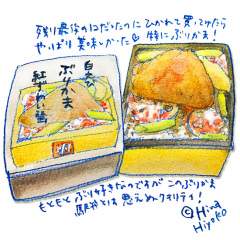 残り最後の1コだったのにひかれて買ってみたら
やっぱり美味しかった♡ 特にぶりかま!
ぶりかま
もともとぶり好きなのですがこのぶりかま
駅弁とは思えぬクオリティ!
©Hina
Hiyoko